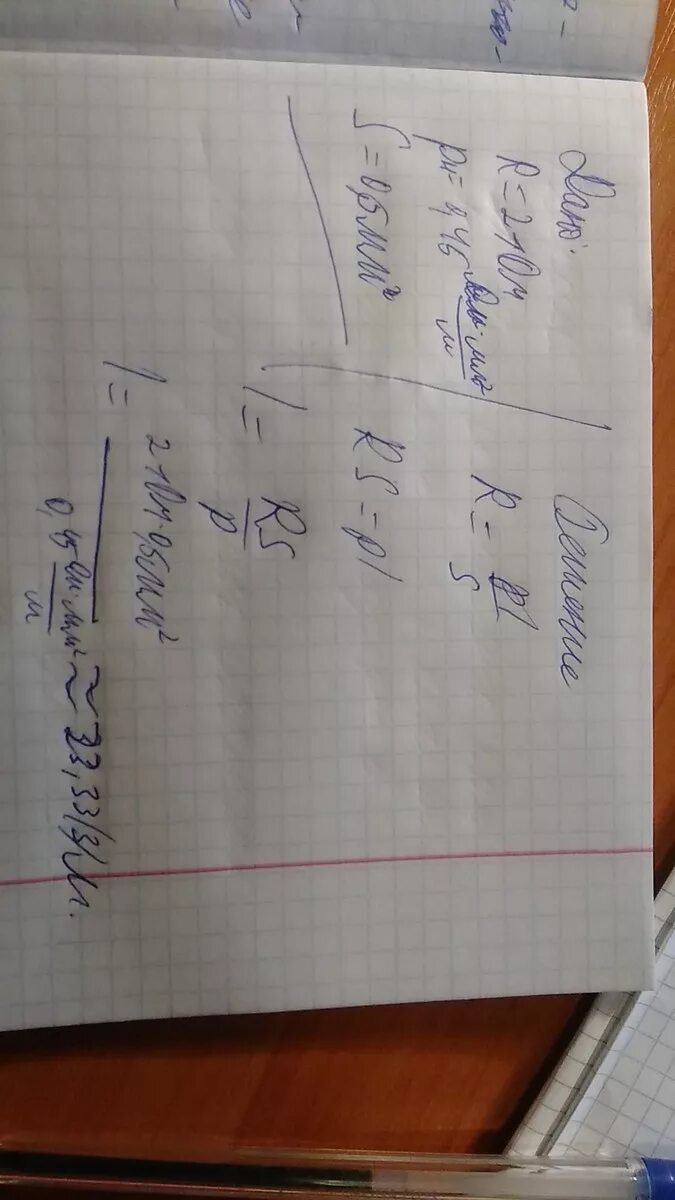 Дано:
R=21Ом
ρн=0,45 Ом·мм²/м
S=0,5мм²
Решение
R=ρl/S
RS=ρl
l=RS/ρ
l=21Ом·0,5мм²/0,45 Ом·мм²/м≈23,33(3)м.